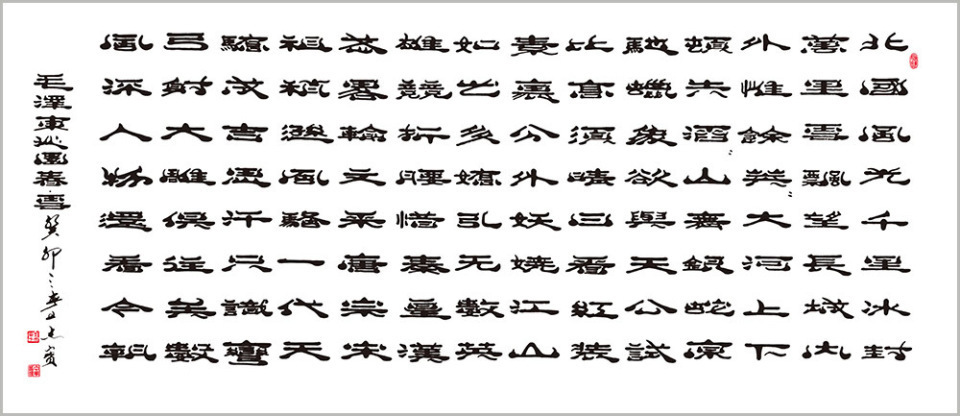 北國風光千里冰封
萬里雪飄望長城內
外惟餘莽〻大河上下
頓失滔〻山舞銀蛇原
馳蠟象欲與天公試
比高須晴日看紅裝
素裹分外妖嬈江山
如此多嬌引无數英
雄競折腰惜秦皇漢
武畧輸文采唐宗宋
祖稍遜風騷一代天
驕成吉思汗只識彎
弓射大雕俱往矣數
風流人物還看今朝
毛澤東沁園春·雪 癸卯之春